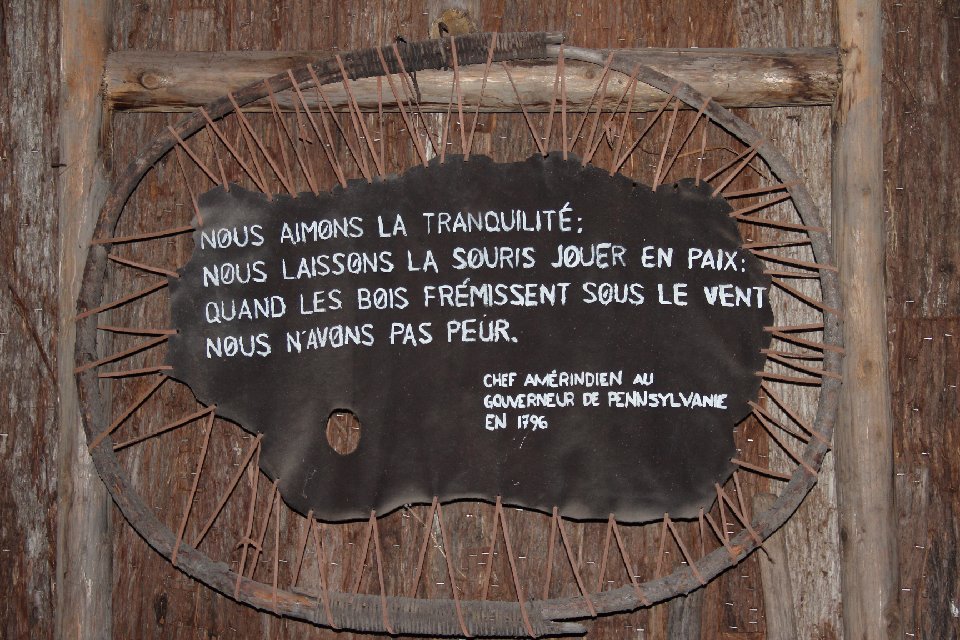 NOUS AIMONS LA TRANQUILITÉ;
NOUS LAISSONS LA SOURIS JOUER EN PAIX:
QUAND LES BOIS FRÉMISSENT SOUS LE VENT
NOUS N'AVONS PAS PEUR.
CHEF AMÉRINDIEN AU
GOUVERNEUR DE PENNSYLVANIE
EN 1796